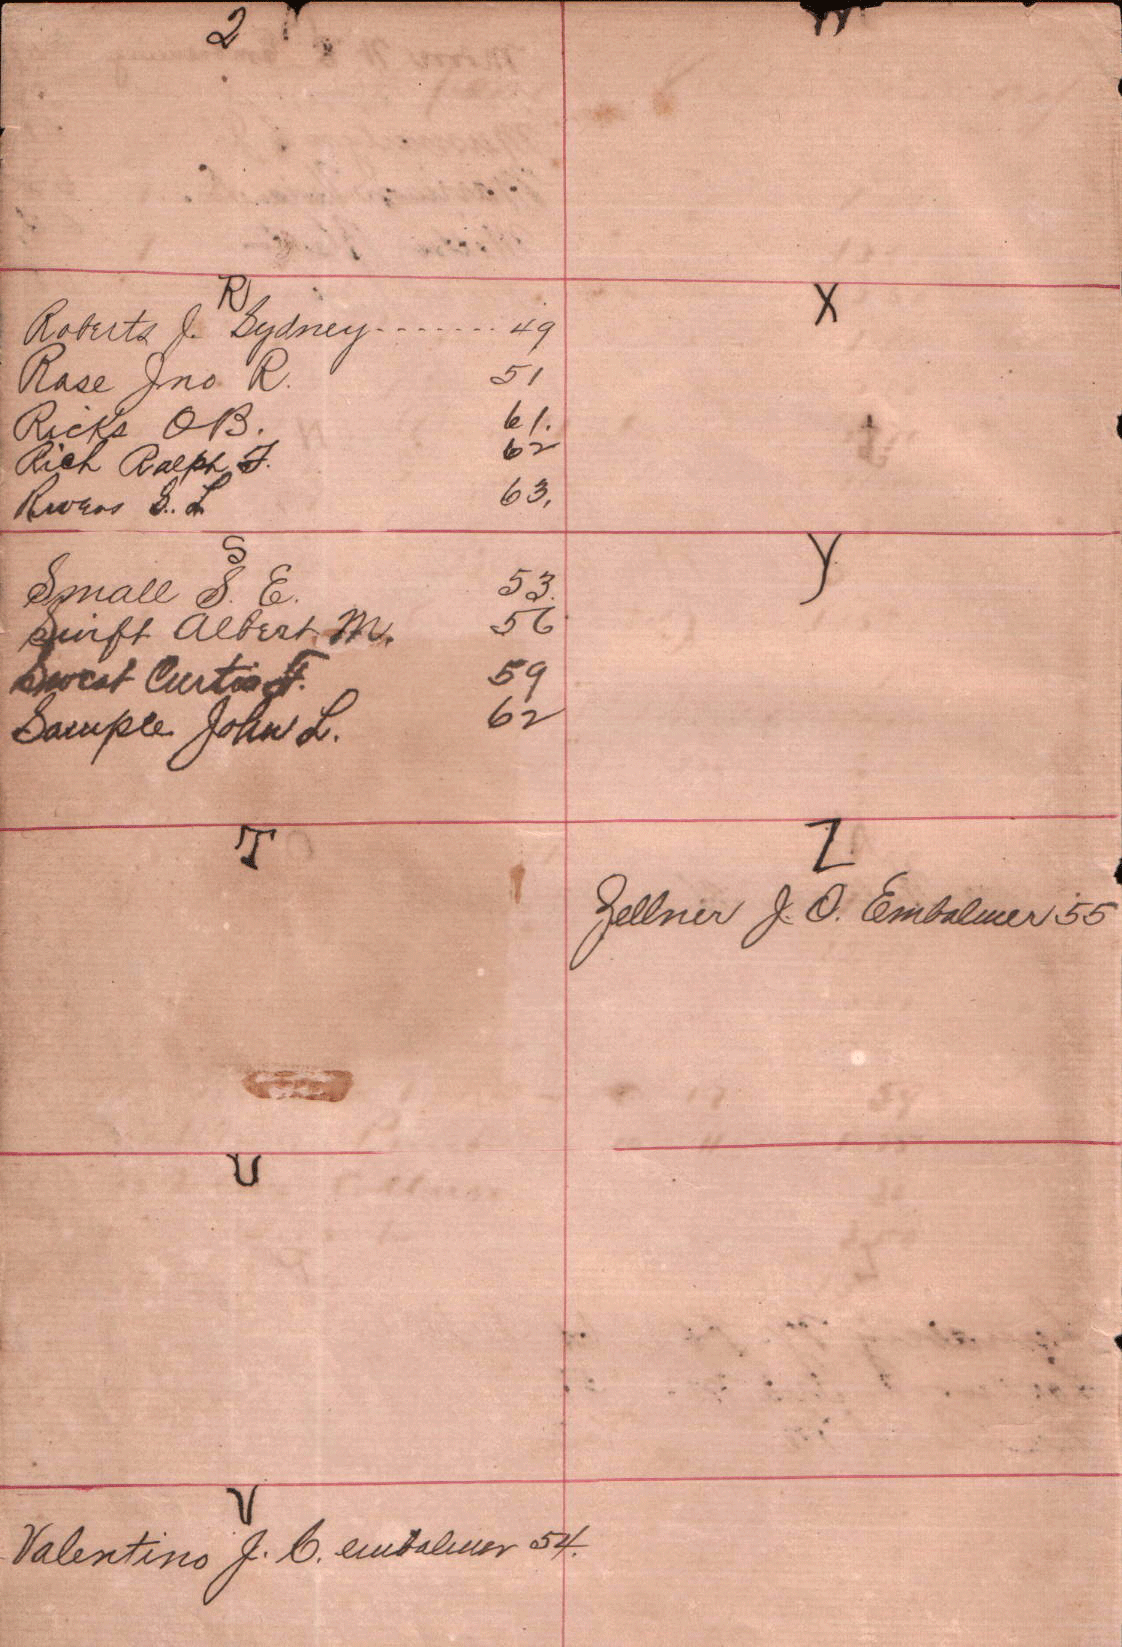 2
R
Roberts J. Sydney ------- 49
Rase Jno R. 51
Ricks O B. 61.
Rich Ralph F. 62
Rivers S. L 63.
S
Small S. E. 53.
Swift Albert M. 56
Sweat Curtis F. 59
Sample John L. 62
T
U
V
Valentino J. C. embalmer 54.
W
X
Y
Z
Zellner J. O. Embalmer 55